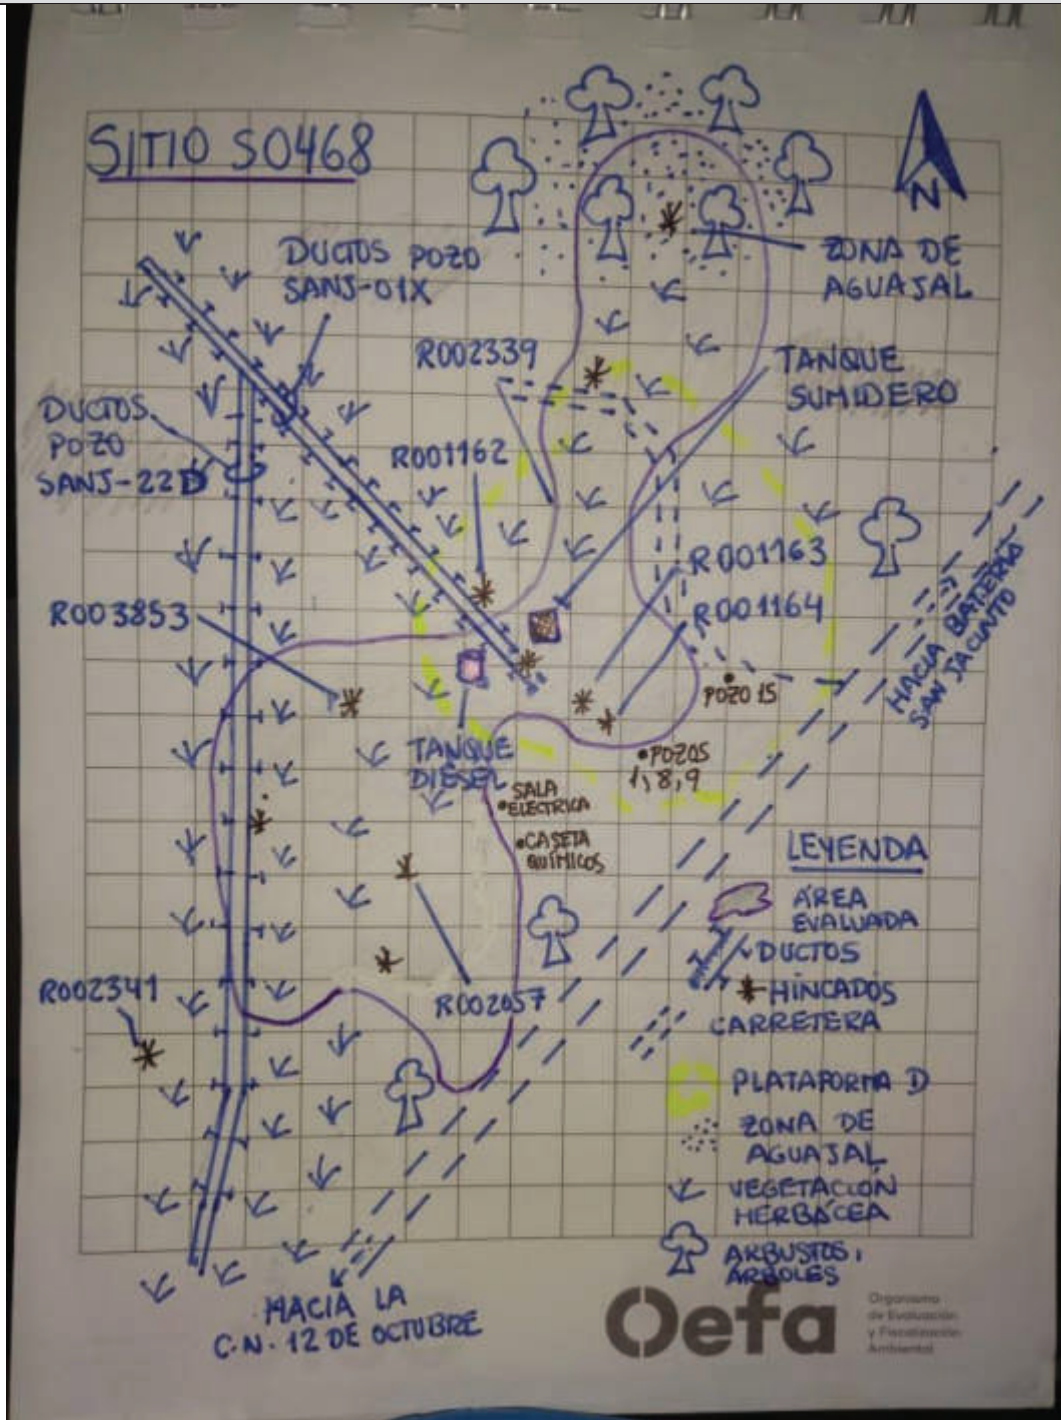 SITIO S0468
N
DUCTOS POZO
SANJ-01X
ZONA DE
AGUAJAL
R002339
TANQUE
SUMIDERO
DUCTOS
POZO
SANJ-22D
R001162
R001163
R003853
R001164
HACIA BATERIA
SAN JACINTO
POZO 15
TANQUE
DIÉSEL
•POZOS
1,8,9
SALA
ELECTRICA
•CASETA
QUÍMICOS
LEYENDA
ÁREA
EVALUADA
DUCTOS
R002341
R002057
HINCADOS
CARRETERA
PLATAFORMA D
ZONA DE
AGUAJAL
VEGETACIÓN
HERBÁCEA
ARBUSTOS,
ÁRBOLES
HACIA LA
C.N. 12 DE OCTUBRE
Oefa
Organismo
de Evaluación
y Fiscalización
Ambiental